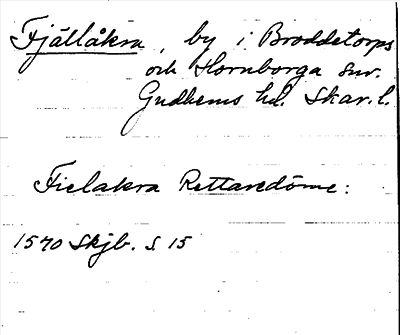 Fjällåkra, by i Broddetorps
och Hornborga snr.
Gudhems hd. Skar. l.
Fielakra Rettaredöme:
1570 Skjb. S 15